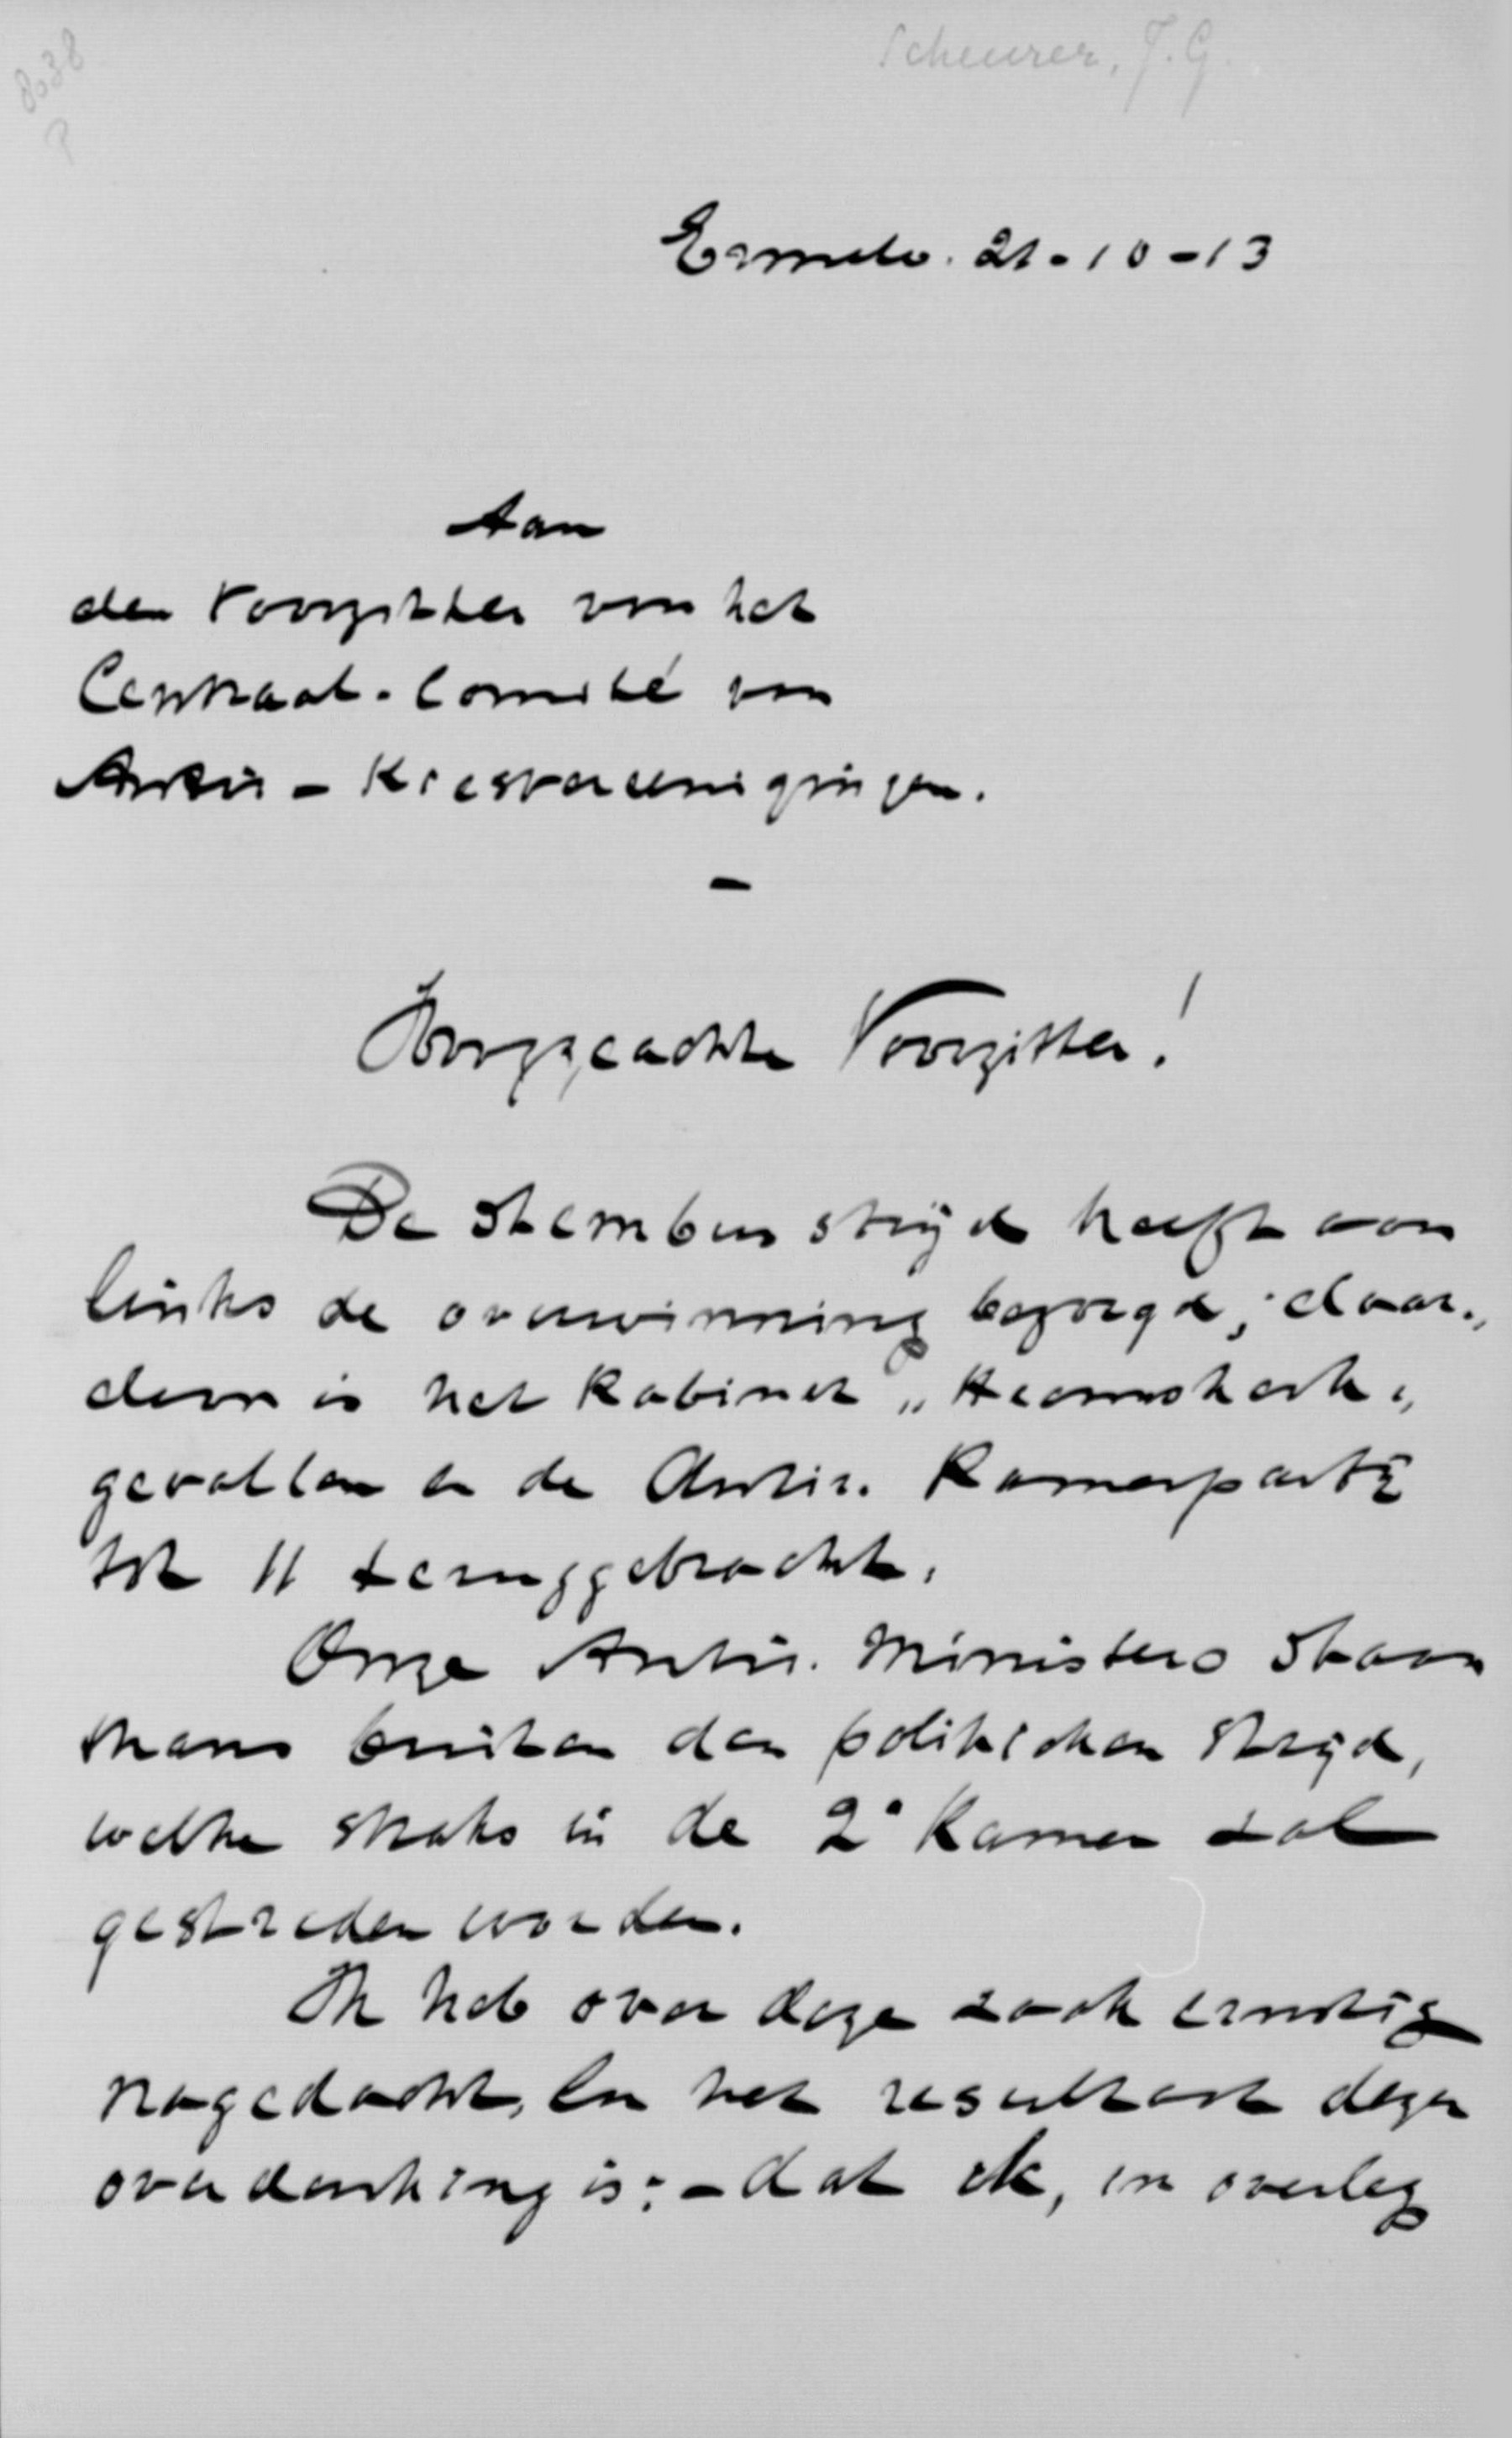 8038
P
Scheurer, J.G.
Ermelo. 21-10-13
Aan
den Voorzitter van het
Centraal-Comité van
Antir-Kiesvereenigingen.
-
Hooggeachte Voorzitter!
De stembusstrijd heeft aan
links de overwinning bezorgd; daar„
door is het Kabinet „Heemskerk„
gevallen en de Antir. Kamerpartij
tot 11 teruggebracht.
Onze Antir. Ministers staan
thans buiten den politieken strijd,
welke straks in de 2e Kamer zal
gestreden worden.
Ik heb over deze zaak ernstig
nagedacht, en het resultaat dezer
overdenking is: - dat ik, in overleg